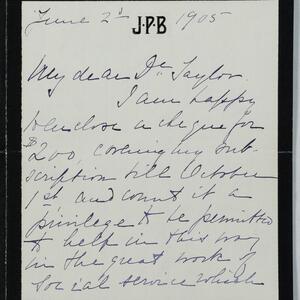 June 2d 1905
J.P.B
My dear Dr Taylor.
I am happy
to enclose a cheque for
$200, covering my sub-
scription till October
1st and count it a
privilege to be permitted
to help in this way
in the great work of
Social service which